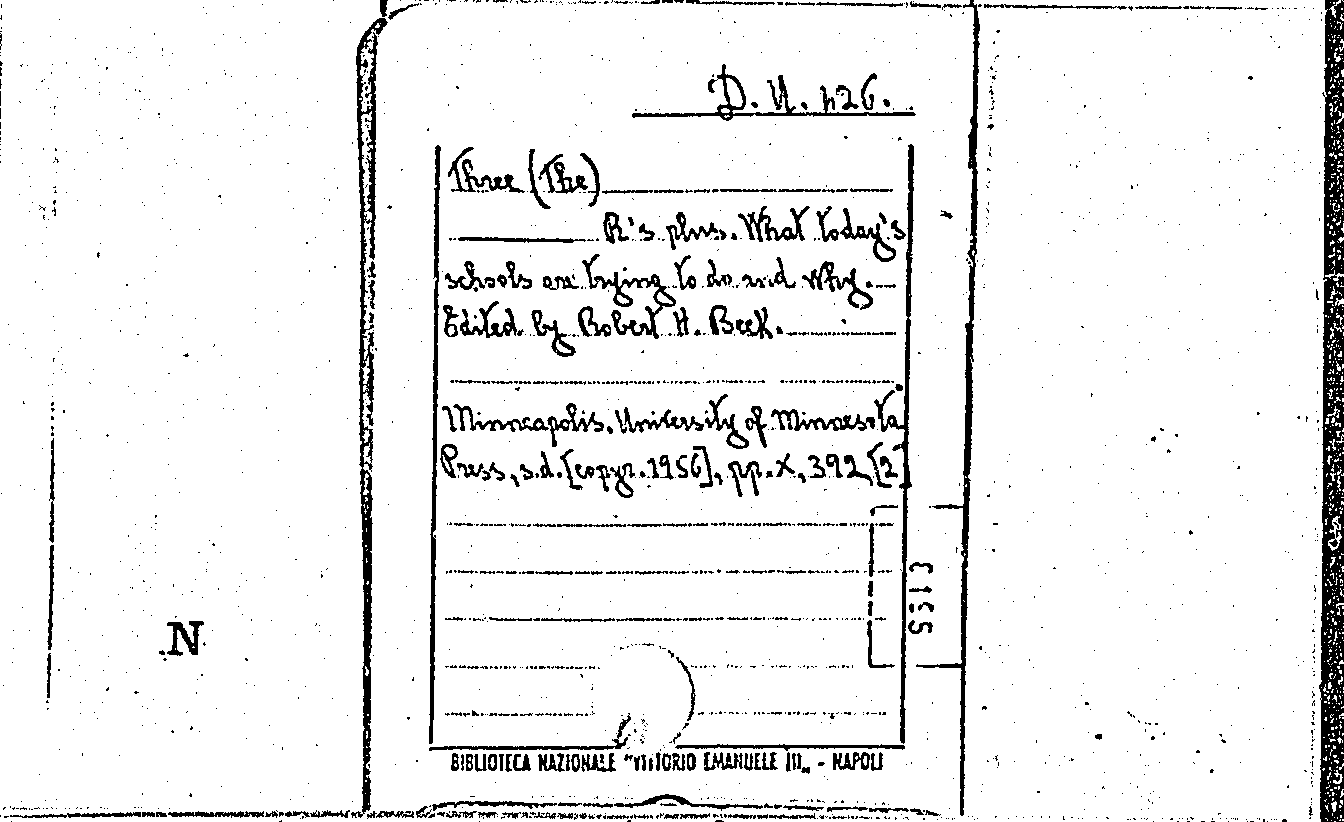 D. U. 426.
Three (The)
R's plus. What today's
schools are trying to do and why.
Edited by Robert H. Beck.
Minneapolis. University of Minnesota
Press, s.d. [copyr. 1956], pp. X, 392, [2]
3155
N
BIBLIOTECA NAZIONALE "VITTORIO EMANUELE III„ - NAPOLI